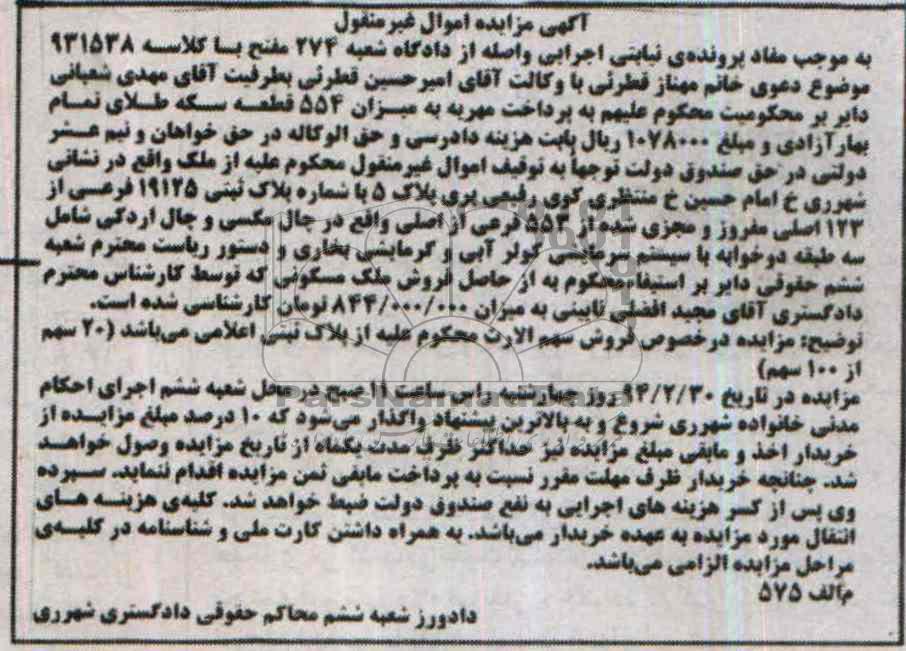 آگهی مزایده اموال غیرمنقول
به موجب مفاد پرونده‌ی نیابتی اجرایی واصله از دادگاه شعبه ۲۷۴ مفتح بـا کلاسـه ۹۳۱۵۳۸
موضوع دعوی خانم مهناز قطرئی با وکالت آقای امیرحسین قطرئی بطرفیت آقای مهدی شعبانی
دایر بر محکومیت محکوم علیهم به پرداخت مهریه به میـزان ۵۵۴ قطعـه سـکه طـلای تمـام
بهارآزادی و مبلغ ۱۰۷۸۰۰۰ ریال بابت هزینه دادرسی و حق الوکاله در حق خواهان و نیم عـشر
دولتی در حق صندوق دولت توجهاً به توقیف اموال غیرمنقول محکوم علیه از ملک واقع در نشانی
شهرری خ امام حسین خ منتظری کوی رفیعی پری پلاک ۵ با شماره پلاک ثبتی ۱۹۱۲۵ فرعـی از
۱۲۳ اصلی مفروز و مجزی شده از ۵۵۳ فرعی از اصلی واقع در چال مکسی و چال اردکی شامل
سه طبقه دوخوابه با سیستم سرمایشی کولر آبی و گرمایشی بخاری و دستور ریاست محترم شعبه
ششم حقوقی دایر بر استیفاء محکوم به از حاصل فروش ملک مسکونی که توسط کارشناس محترم
دادگستری آقای مجید افضلی نایینی به میزان ۸۴۴/۰۰۰/۰۰۰ تومان کارشناسی شده است.
توضیح: مزایده درخصوص فروش سهم الارث محکوم علیه از پلاک ثبتی اعلامی می‌باشد (۲۰ سهم
از ۱۰۰ سهم)
مزایده در تاریخ ۹۴/۲/۳۰ روز چهارشنبه راس ساعت ۱۱ صبح در محل شعبه ششم اجرای احکام
مدنی خانواده شهرری شروع و به بالاترین پیشنهاد واگذار می‌شود که ۱۰ درصد مبلغ مزایـده از
خریدار اخذ و مابقی مبلغ مزایده نیز حداکثر ظرف مدت یکماه از تاریخ مزایده وصول خواهـد
شد. چنانچه خریدار ظرف مهلت مقرر نسبت به پرداخت مابقی ثمن مزایده اقدام ننماید. سـپرده
وی پس از کسر هزینه های اجرایی به نفع صندوق دولت ضبط خواهد شد. کلیه‌ی هزینـه هـای
انتقال مورد مزایده به عهده خریدار می‌باشد. به همراه داشتن کارت ملی و شناسنامه در کلیـه‌ی
مراحل مزایده الزامی می‌باشد.
م/الف ۵۷۵
دادورز شعبه ششم محاکم حقوقی دادگستری شهرری